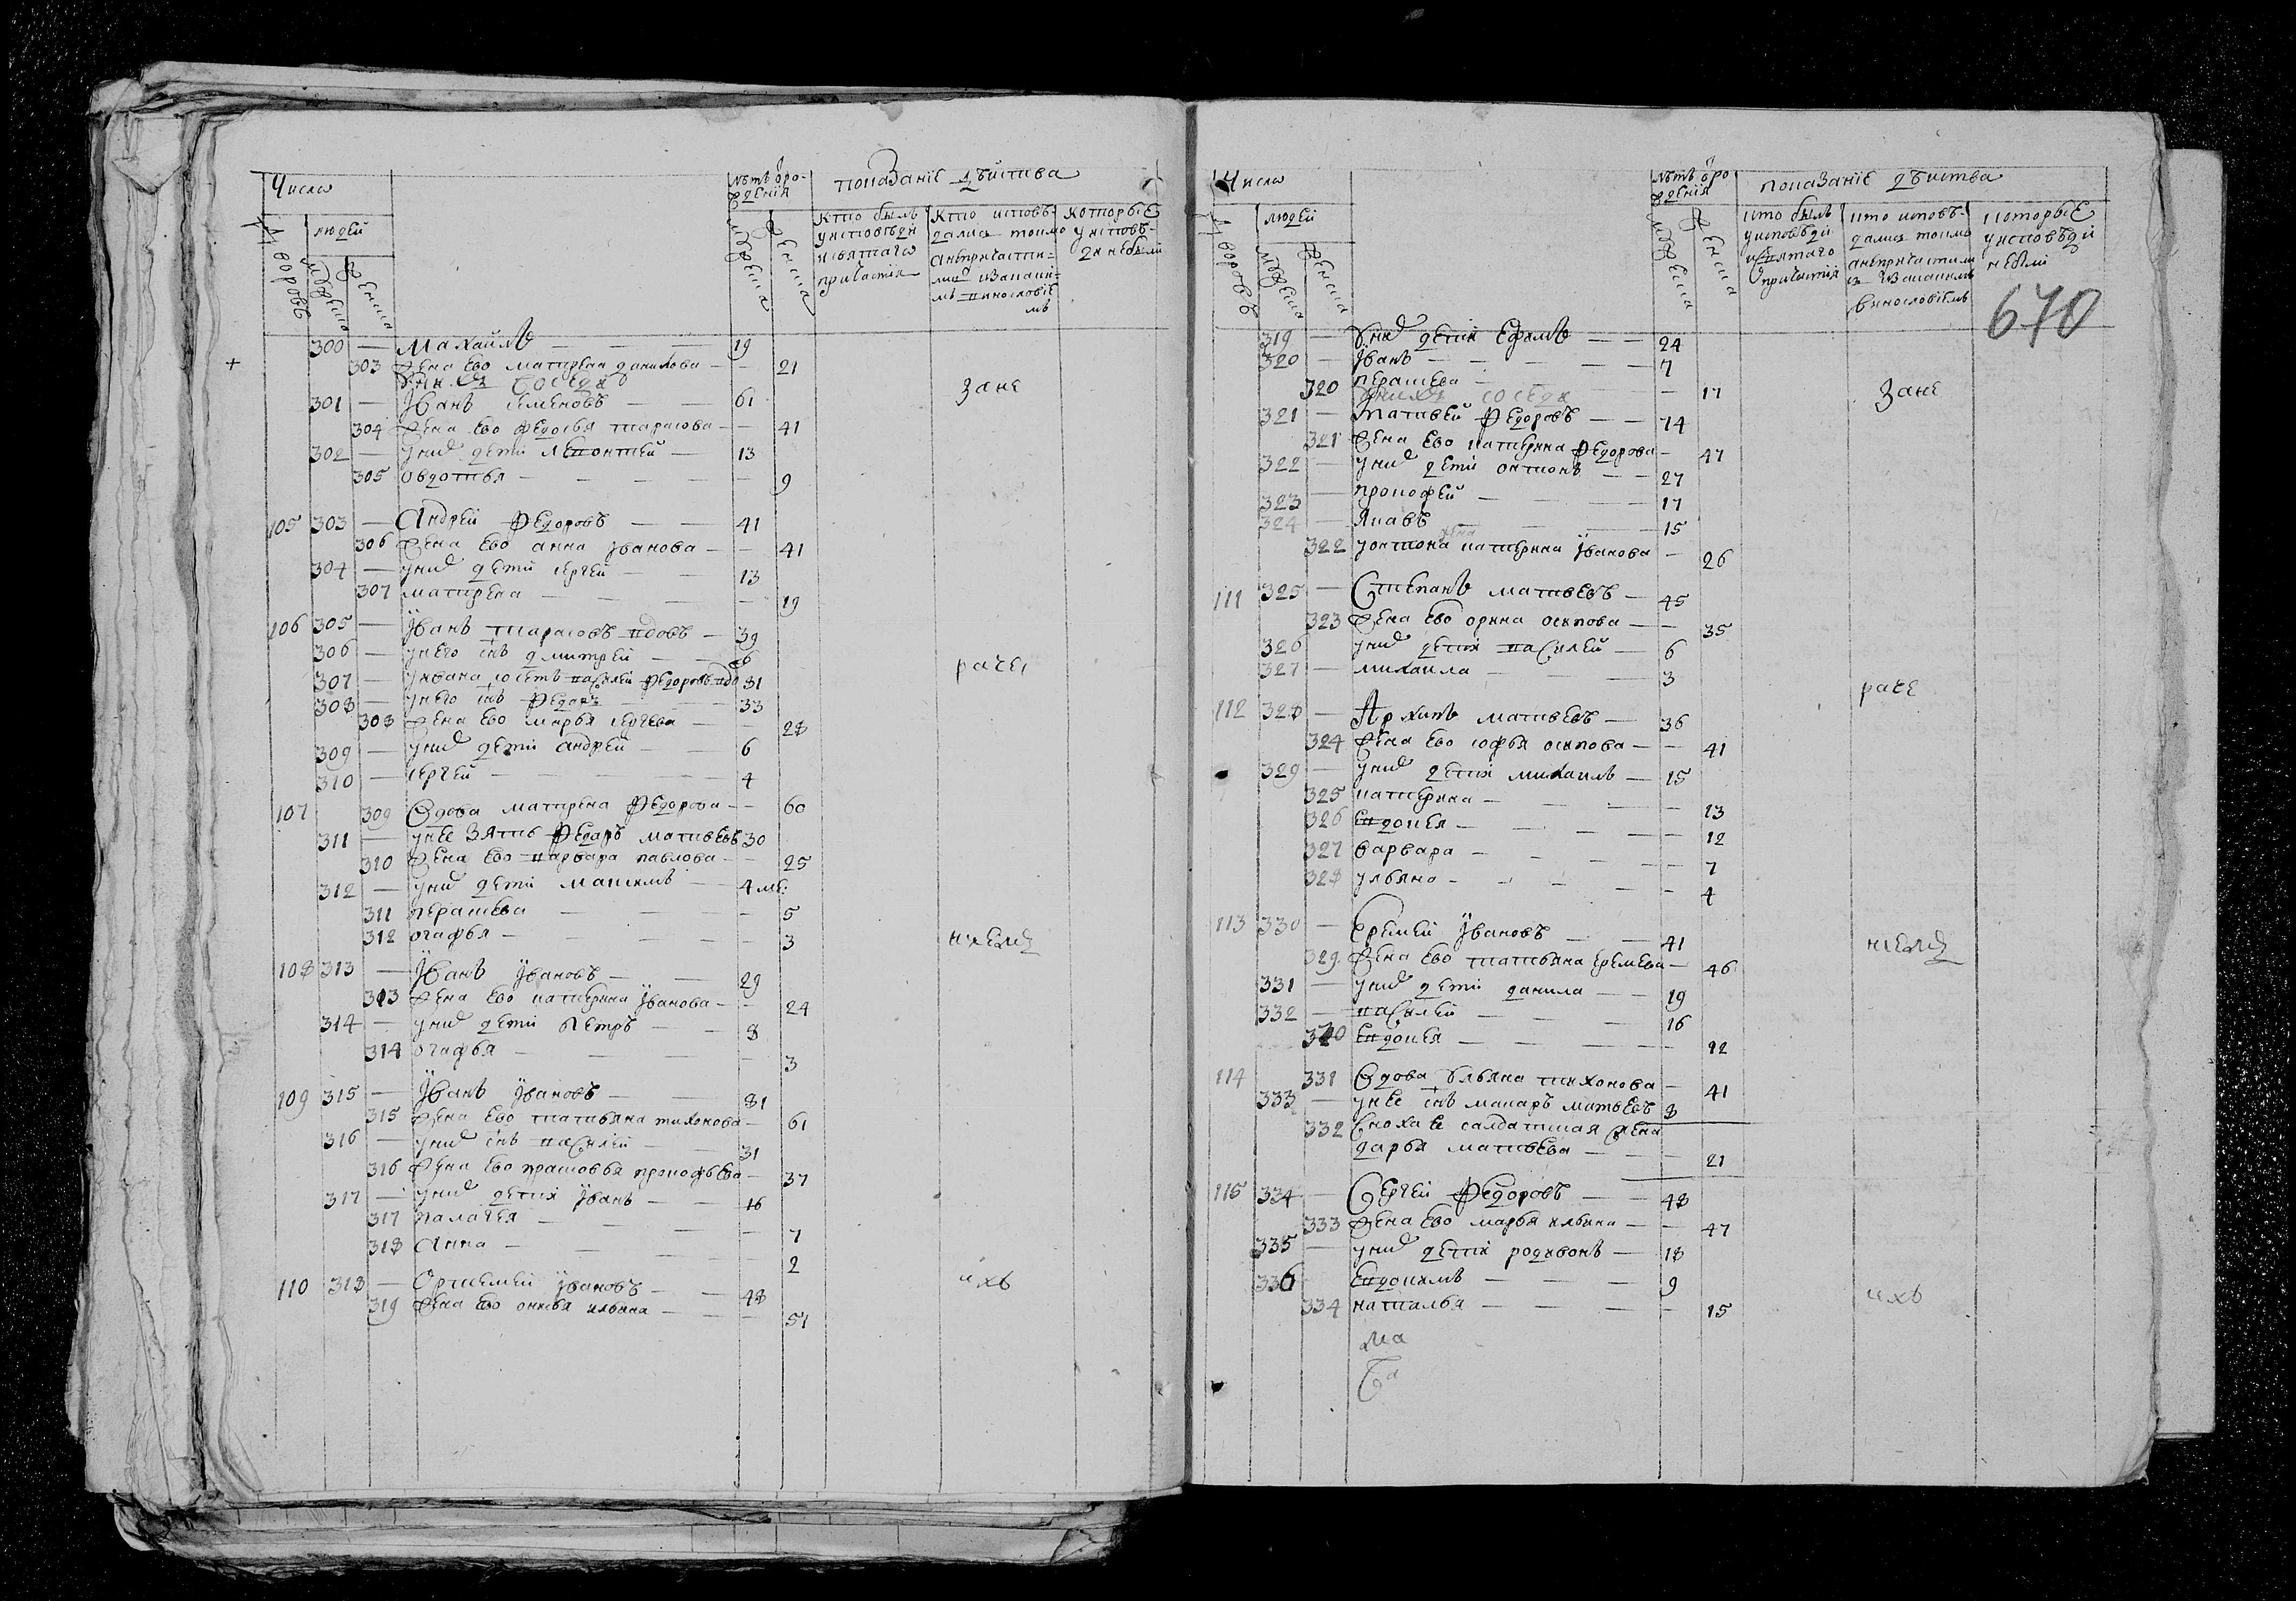 Числа
лѣтъ от ро-
ждения
показание действа
дворовъ
людей
мужеска
женска
мужеска
женска
кто былъ
у исповѣди
и святаго
причастия
кто исповѣ-
дались токмо
а не причасти-
лись и за каки-
мъ винословие
мъ
которые
у исповѣ-
ди не были
300 — Михайлъ — 19
303 жена ево матрена данилова — 21
у нихъ соседи
301 — Иванъ семеновъ — 61
304 жена ево федосья тарасова — 41
302 — у нихъ дети леонтей — 13
305 овдотья — 9
105 303 — Андрей федоровъ — 41
306 жена ево анна иванова — 41
304 — у нихъ дети сергей — 13
307 матрена — 19
106 305 — Иванъ тарасовъ вдовъ — 39
306 — у него снъ дмитрей — 6
307 — у ивана соседъ василей федоровъ вдо 31
308 — у него снъ федоръ — 33
308 жена ево марья сергеева — 28
309 — у нихъ дети андрей — 6
310 — сергей — 4
107 309 вдова матрена федорова — 60
311 — у нее зять федоръ матвеевъ 30
310 жена ево варвара павлова — 25
312 — у нихъ дети максимъ — 4 ме:
311 перасковя — 5
312 огафья — 3
108 313 — Иванъ ивановъ — 29
313 жена ево катерина иванова — 24
314 — у нихъ дети петръ — 8
314 огафья — 3
109 315 — Иванъ ивановъ — 81
315 жена ево татьяна тихонова — 61
316 — у нихъ снъ василей — 31
316 жена ево прасковья прокофьева — 37
317 — у нихъ дети иванъ — 16
317 палагея — 7
318 анна — 2
110 318 — Ортемей ивановъ — 48
319 жена ево ильина — 51
за не
раче
ниемъ
ихъ
Числа
лѣтъ от ро
ждения
показание действа
дворовъ
людей
мужеска
женска
мужеска
женска
кто былъ
у исповѣди
и святаго
причастия
кто исповѣ-
дались токмо
а не причастили
сь и за какимъ
винословиемъ
которые
у исповѣди
не были
670
319 — у нихъ дети ефимъ — 24
320 — иванъ — 7
320 перасковя — 17
у нихъ соседи
321 — матвей федоровъ — 74
321 жена ево катерина федорова — 47
322 — у нихъ дети онтонъ — 27
323 — прокофей — 17
324 — яковъ — 15
322 у онтона жена катерина иванова — 26
111 325 — Степанъ матвеевъ — 45
323 жена ево орина осипова — 35
326 у нихъ дети василей — 6
327 — михаила — 3
112 328 — Архипъ матвеевъ — 36
324 жена ево софья осипова — 41
329 — у нихъ дети михаилъ — 15
325 катерина — 13
326 евдокея — 12
327 варвара — 7
328 ульяна — 4
113 330 — Еремей ивановъ — 41
329 жена ево татьяна еремеева — 46
331 — у нихъ дети данила — 19
332 — василей — 16
330 евдокея — 12
114 331 вдова ульяна тихонова — 41
333 — у нее снъ макаръ матвеевъ 8
332 сноха ее салдатская жена
дарья матвеева — 21
115 334 — Сергей федоровъ — 48
333 жена ево марья ильина — 47
335 — у нихъ дети родивонъ — 18
336 евдокимъ — 9
334 наталья — 15
за не
раче
ниемъ
ихъ
ма